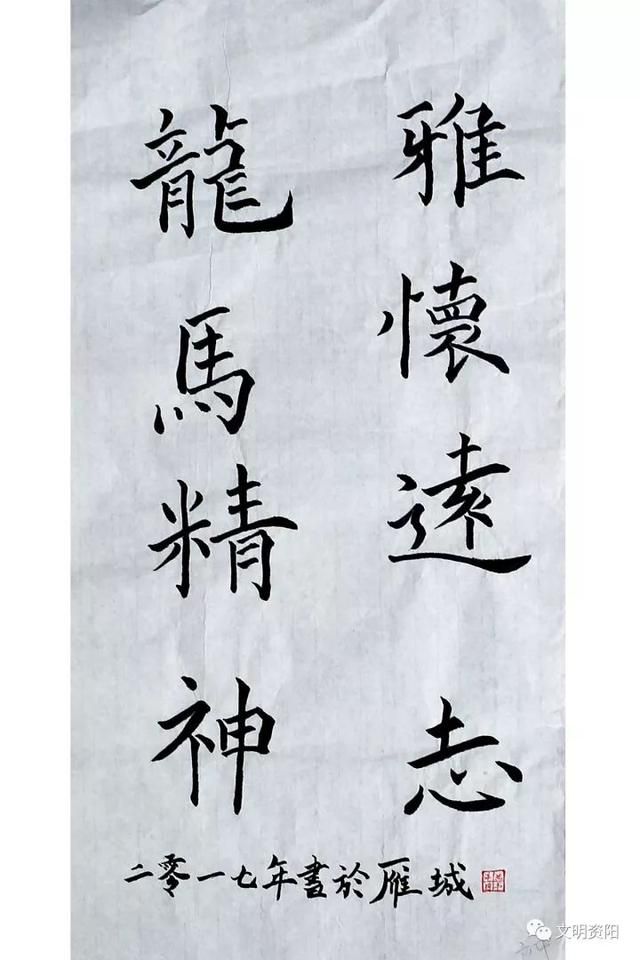 雅懷遠志
龍馬精神
二零一七年書於雁城
文明资阳